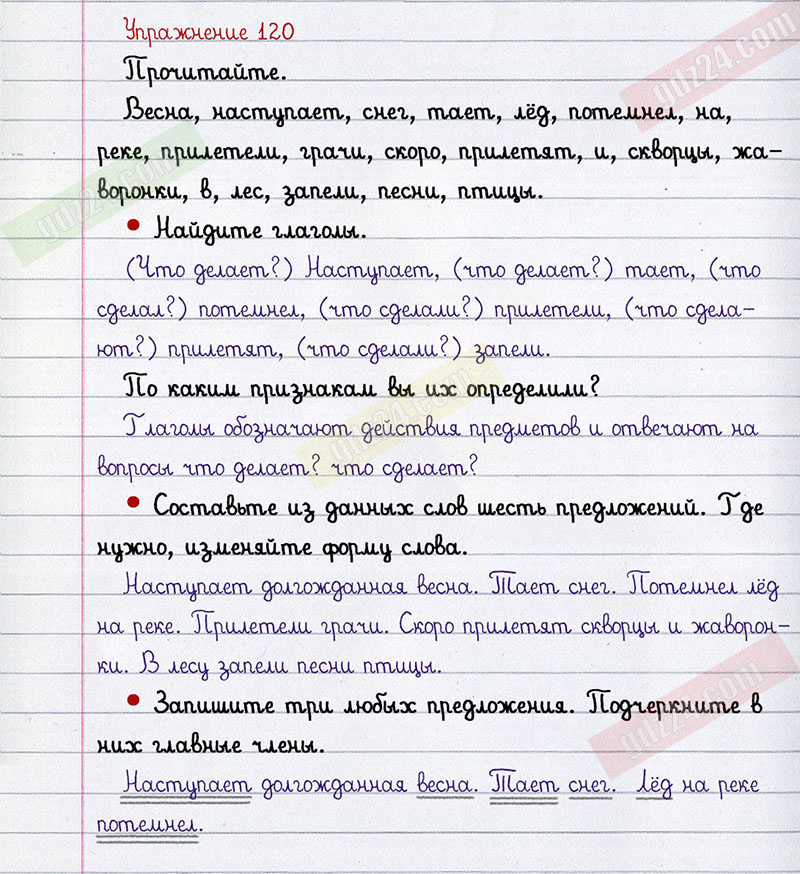 Упражнение 120
Прочитайте.
Весна, наступает, снег, тает, лёд, потемнел, на,
реке, прилетели, грачи, скоро, прилетят, и, скворцы, жа-
воронки, в, лес, запели, песни, птицы.
• Найдите глаголы.
(Что делает?) Наступает, (что делает?) тает, (что
сделал?) потемнел, (что сделали?) прилетели, (что сдела-
ют?) прилетят, (что сделали?) запели.
По каким признакам вы их определили?
Глаголы обозначают действия предметов и отвечают на
вопросы что делает? что сделает?
• Составьте из данных слов шесть предложений. Где
нужно, изменяйте форму слова.
Наступает долгожданная весна. Тает снег. Потемнел лёд
на реке. Прилетели грачи. Скоро прилетят скворцы и жаворон-
ки. В лесу запели песни птицы.
• Запишите три любых предложения. Подчеркните в
них главные члены.
Наступает долгожданная весна. Тает снег. Лёд на реке
потемнел.
gdz24.com
gdz24.com
gdz24.com
gdz24.com